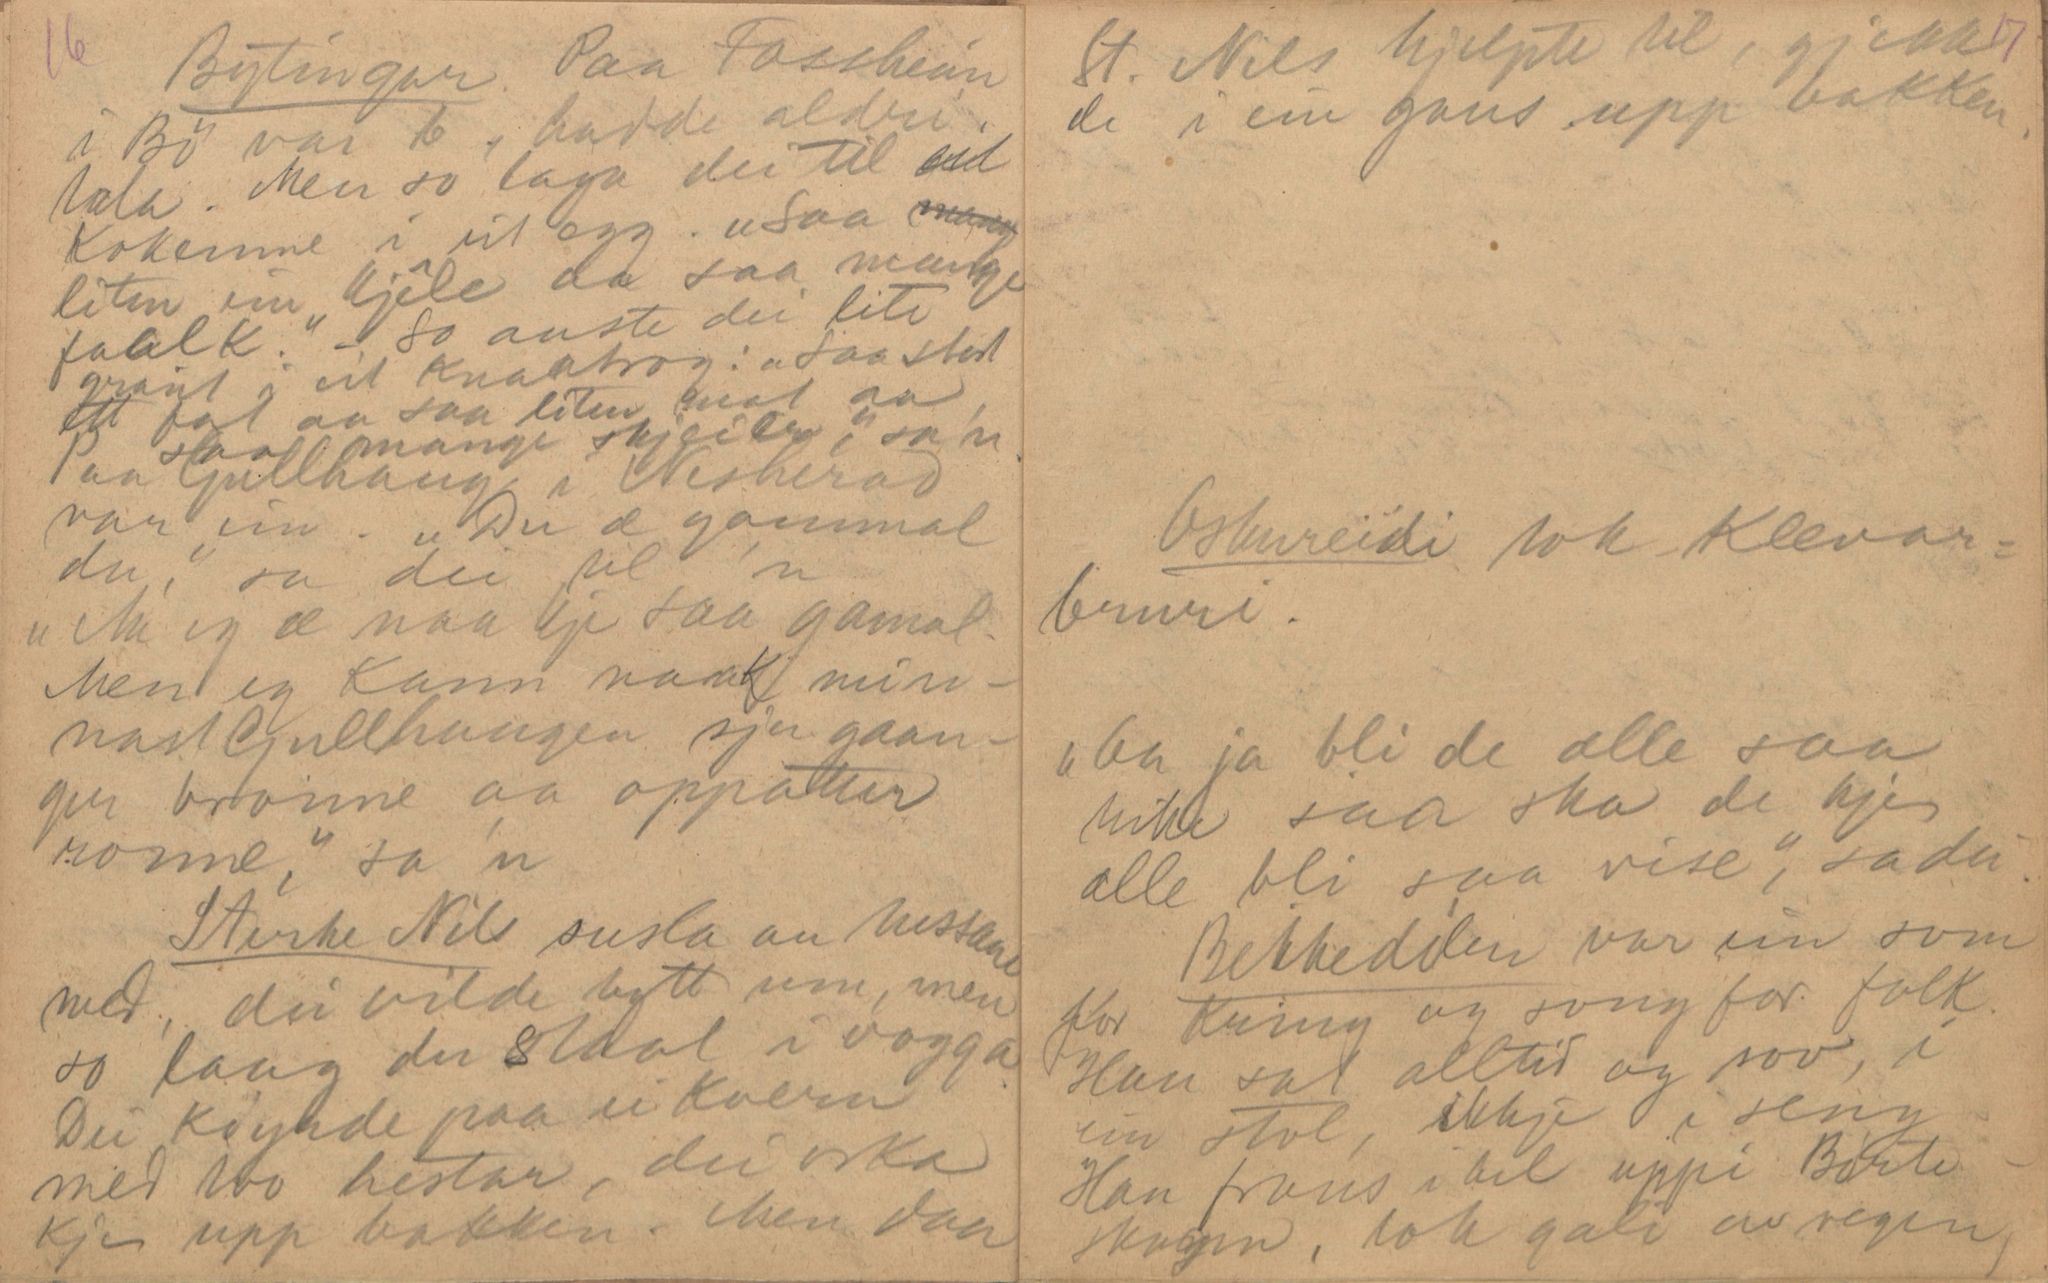 16
Bytingar. Paa Fossheim
i Bø var 6, hadde aldri
tala. Men so laga dei til
Kokemne i eit egg. "Saa
liten ein kjele aa saa mange
faalk." - So auste dei lite
graut i eit Knaatrog: "Saa stort
ett fat aa saa liten mat aa
saa mange skjeier," sa'n.
Paa Gullhaug i Nesherad
var ein. "Du æ gommal
du," sa dei til 'n
"Aa eg æ naa kje saa gamal.
Men eg Kann naak min-
nast Gullhaugen sju gaan-
ger bronne aa oppatter
ronne," sa 'n
Sterke Nils susla au tussane
med, dei vilde bytt um, men
so laag der Staal i vogga
Dei køyrde paa ei Kvern
med two hestar, dei orka
Kje upp bakken. Men daa
17
St. Nils hjelpte til, gjekk
de i ein gaus upp bakken.
Oskureidi tok Klevar-
bruri.
"Aa ja bli de alle saa
rike saa ska de kje
alle bli saa vise", sa dei.
Bekkedølen var ein som
for Kring og song for folk.
Han sat alltid og sov, i
ein stol, ikkje i seng
Han fraus ihel uppi Børte-
skogen, tok gali av vegen,